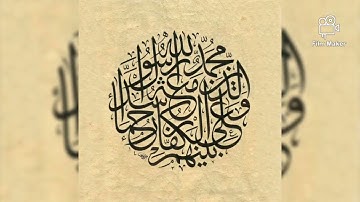 محمد رسول الله والذين معه أشداء على الكفار رحماء بينهم
FilmMaker